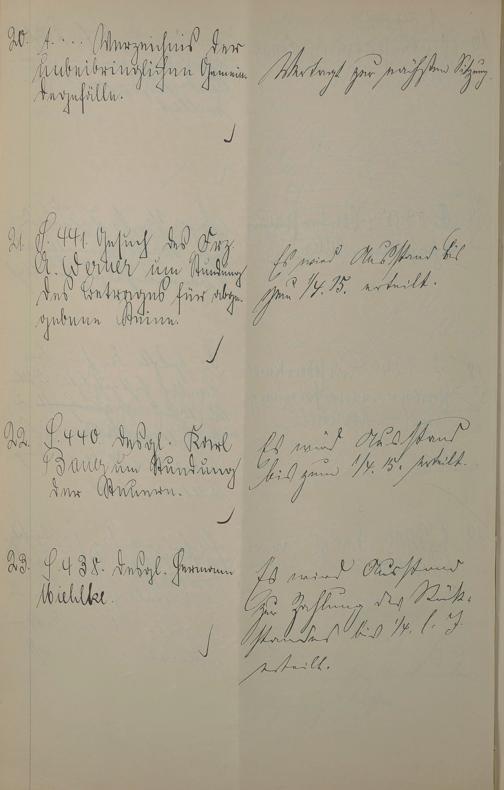 20. Verzeichnis der
unbeibringlichen Gemein-
degefälle.
Vertagt zur nächsten Sitzung
21. P. 441 Gesuch des Frz.
A. um Stundung
des Betrages für abge-
gebene Steine.
Es wird Ausstand bis
zum 1/4. 15. erteilt.
22. P. 440 desgl. Karl
Bang um Stundung
der Steuern.
Es wird Ausstand
bis zum 1/4. 15. erteilt.
23. P. 438. desgl. Hermann
Mielke.
Es wird Ausstand
zur Zahlung des Rück-
standes bis 1/4. l. J.
erteilt.